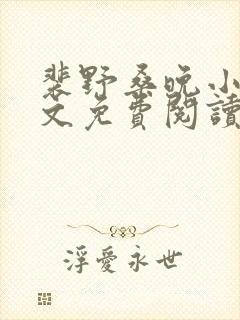 裴野桑晚小
文免費閱讀
浮愛永世